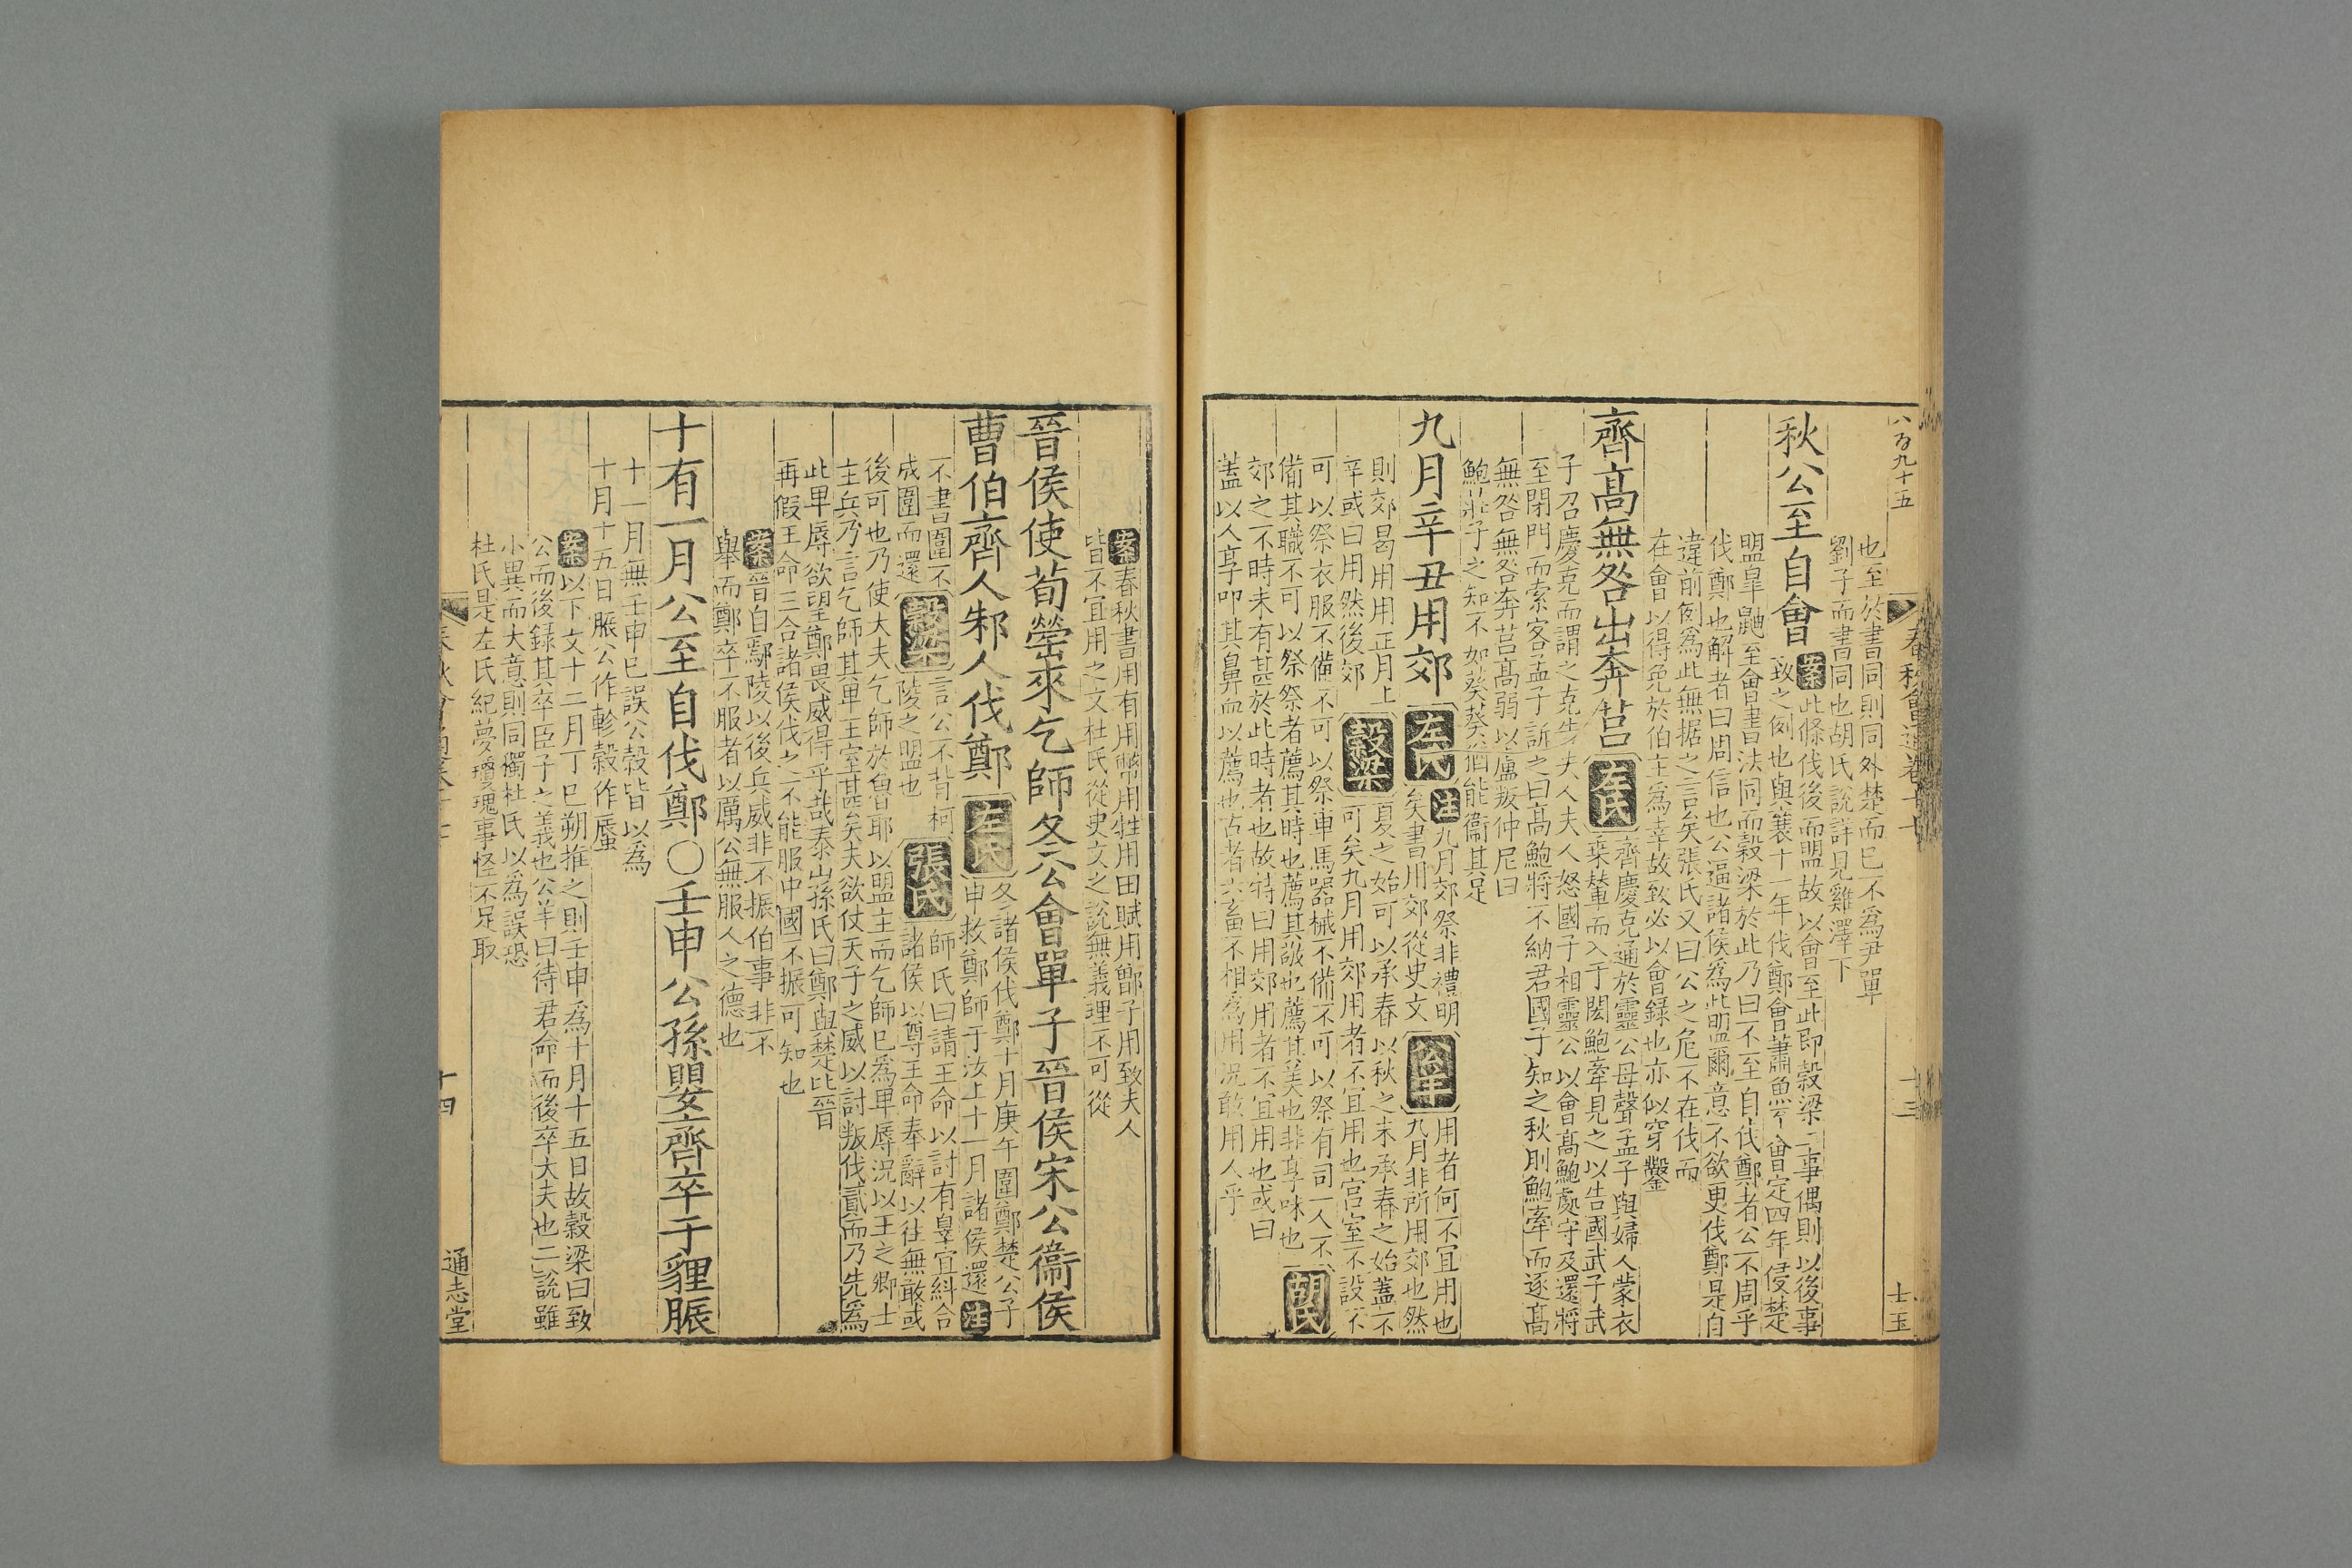 八百九十五
春秋會通卷十七
十三
士玉
也至於書同則同外楚而已不為尹單
劉子而書同也胡氏說詳見雞澤下
秋公至自會 案 此條伐後而盟故以會至此即穀梁二事偶則以後事
致之例也與襄十一年伐鄭會蕭魚會定四年侵楚
盟臯鼬至會書法同而穀梁於此乃曰不至自伐鄭者公不周乎
伐鄭也解者曰周信也公逼諸侯為此盟爾意不欲更伐鄭是自
違前例為此無据之言矣張氏又曰公之危不在伐而
在會以得免於伯主為幸故致必以會録也亦似穿鑿
齊髙無咎出奔莒 左氏 齊慶克通於靈公母聲孟子與婦人蒙衣
乗輦而入于閎鮑牽見之以告國武子武
子召慶克而謂之克告夫人夫人怒國子相靈公以會髙鮑處守及還將
至閉門而索客孟子訴之曰髙鮑將不納君國子知之秋刖鮑牽而逐髙
無咎無咎奔莒髙弱以盧叛仲尼曰
鮑莊子之知不如葵葵猶能衞其足
九月辛丑用郊 左氏 注 九月郊祭非禮明
矣書用郊從史文 公羊 用者何不宜用也
九月非所用郊也然
則郊曷用用正月上
辛或曰用然後郊 穀梁 夏之始可以承春以秋之末承春之始蓋不
可矣九月用郊用者不宜用也宮室不設不
可以祭衣服不備不可以祭車馬器械不備不可以祭有司一人不
備其職不可以祭祭者薦其時也薦其敬也薦其美也非享味也 胡氏
郊之不時未有甚於此時者也故特曰用郊用者不宜用也或曰
蓋以人享叩其鼻血以薦也古者六畜不相為用況敢用人乎
案 春秋書用有用幣用牲用田賦用鄫子用致夫人
皆不宜用之文杜氏從史文之說無義理不可從
晉侯使荀罃來乞師冬公會單子晉侯宋公衞侯
曹伯齊人邾人伐鄭 左氏 冬諸侯伐鄭十月庚午圍鄭楚公子
申救鄭師于汝上十一月諸侯還 注
不書圍不
成圍而還 穀梁 言公不背柯
陵之盟也 張氏 師氏曰請王命以討有辠宜糾合
諸侯以尊王命奉辭以往無敢或
後可也乃使大夫乞師於魯耶以盟主而乞師已為卑辱況以王之卿士
主兵乃言乞師其卑王室甚矣夫欲仗天子之威以討叛伐貳而乃先為
此卑辱欲望鄭畏威得乎哉泰山孫氏曰鄭與楚比晉
再假王命三合諸侯伐之不能服中國不振可知也
案 晉自鄢陵以後兵威非不振伯事非不
舉而鄭卒不服者以厲公無服人之德也
十有一月公至自伐鄭〇壬申公孫嬰齊卒于貍脤
十一月無壬申巳誤公穀皆以為
十月十五日脤公作軫穀作蜃
案 以下文十二月丁巳朔推之則壬申為十月十五日故穀梁曰致
公而後録其卒臣子之義也公羊曰待君命而後卒大夫也二說雖
小異而大意則同獨杜氏以為誤恐
杜氏是左氏紀夢瓊瑰事怪不足取
十四
通志堂